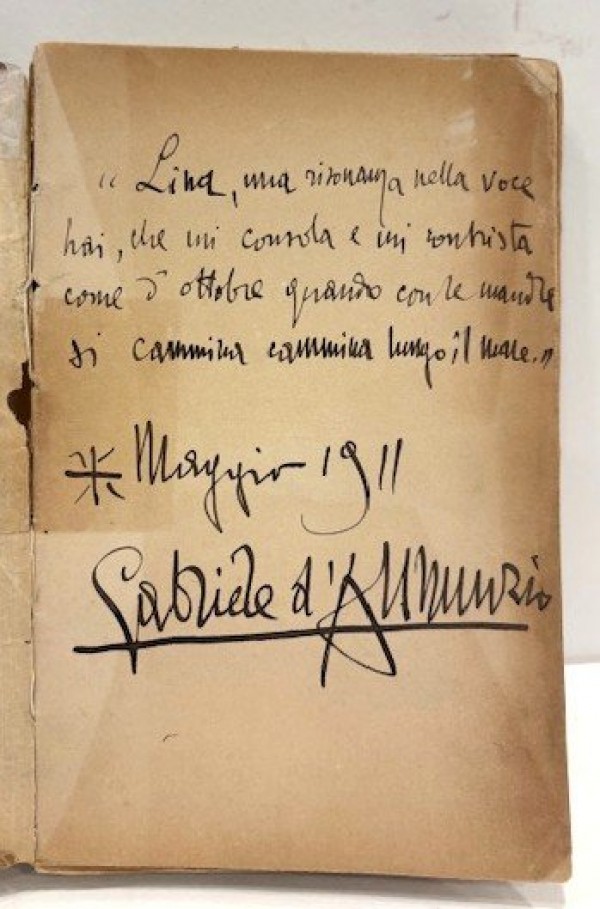 “ Lina, una risonanza nella voce
hai, che mi consola e mi contrista
come d'ottobre quando con le mandre
si cammina cammina lungo il mare.”
* Maggio 1911
Gabriele d'Annunzio